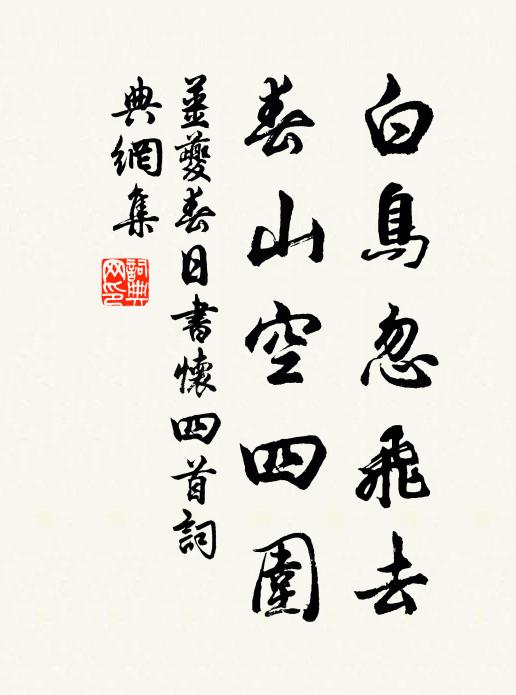 白鳥忽飛去
春山空四圍
姜夔春日書懷四首詞
典網集
詞典网印